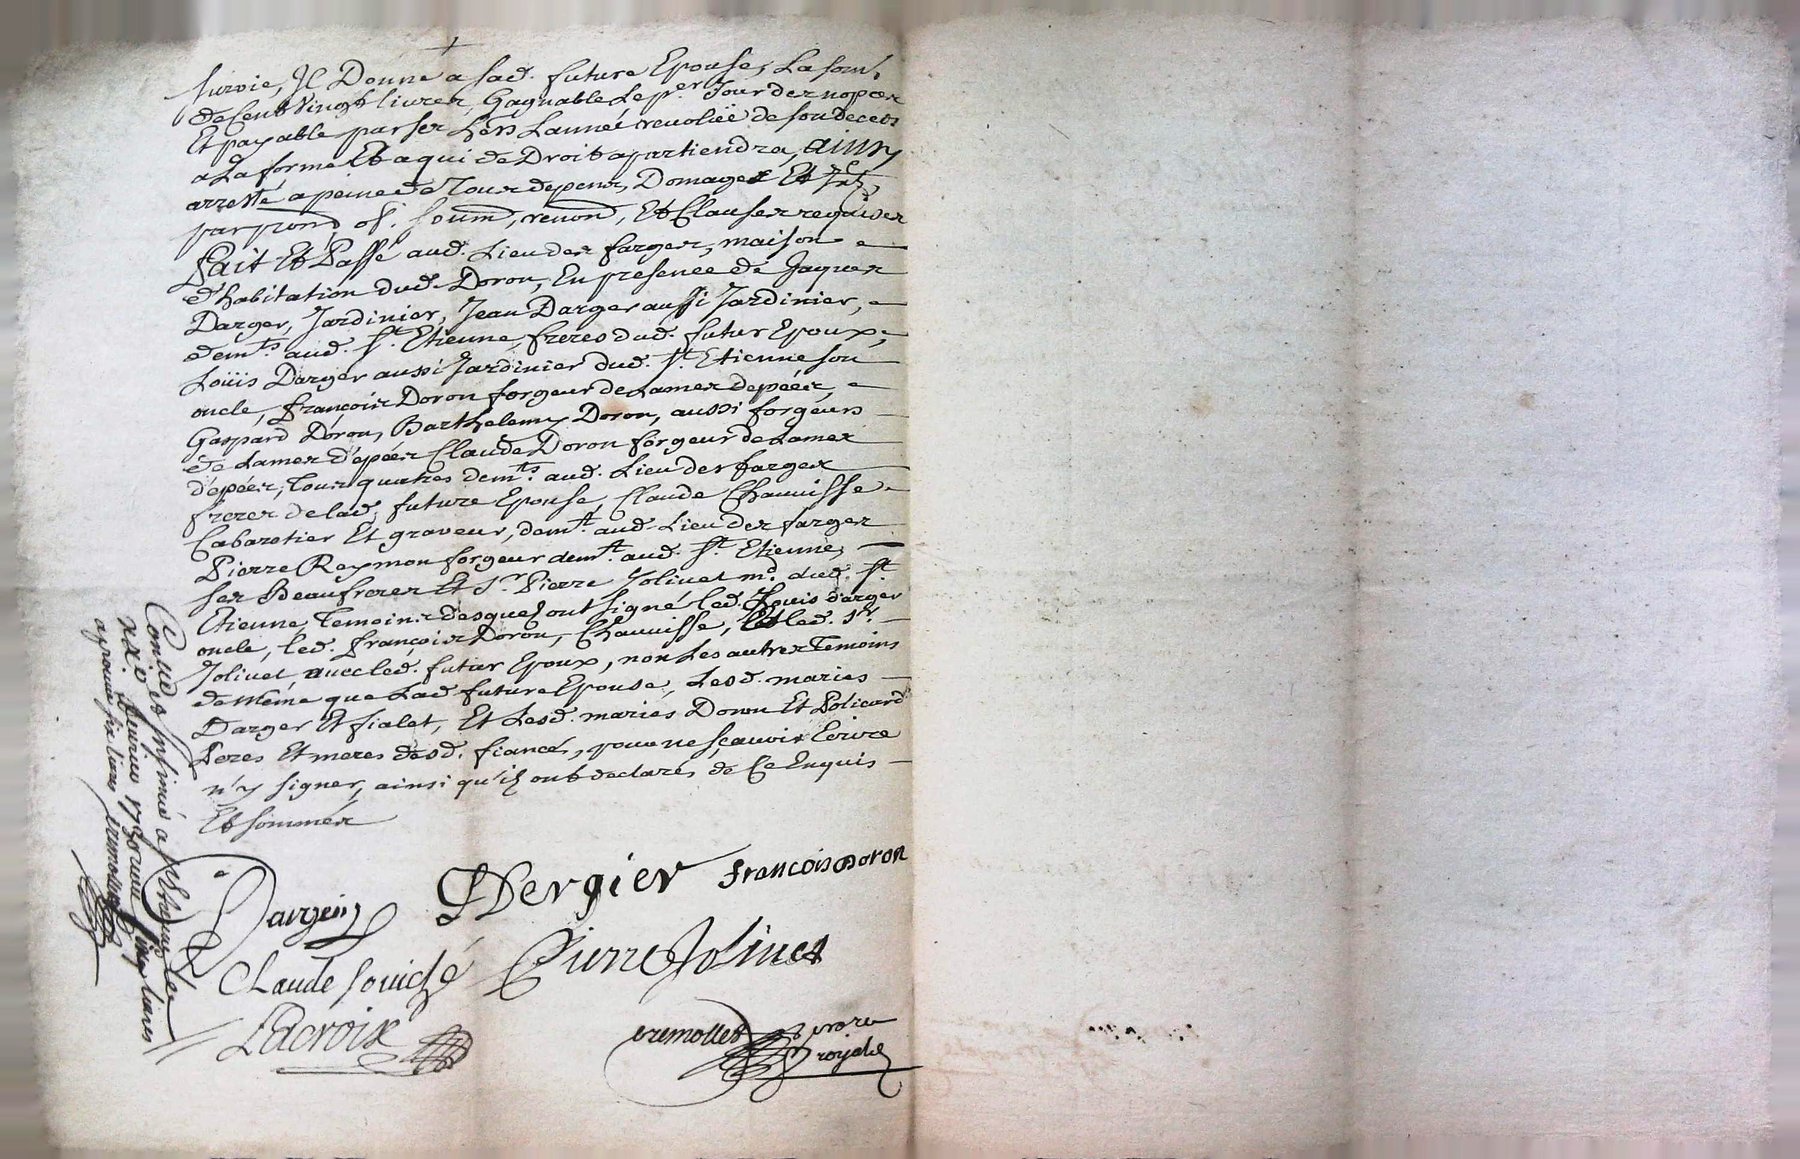 survie, Il Donne a sad. future Epouse, La som.
de Cent Vingt livres, Gagnable Le per. Jour des nopces
Et payable par ses hers Lannée revoliie de son deces
a La forme Et a qui de Droit apartiendra, ainsy
arresté a peine de Tous depens, Domages Et Jnts,
par prom, obl. soum, renon, Et Clauses requises
fait Et Passé aud. Lieu des farges, maison
d'habitation dud. Doron, En presence de Jaques
Darger, Jardinier, Jean Darger aussi Jardinier,
demts. aud. St. Etienne, freres dud. futur Epoux,
Loüis Darger aussi Jardinier dud. St. Etienne son
oncle, françois Doron forgeur de Lames depées,
Gaspard Doron, Barthelemy Doron, aussi forgeurs
de Lames d'épées Claude Doron forgeur de Lames
d'épées, Tous quatres demts. aud. Lieu des farges
freres de lad. future Epouse, Claude Chauvisse
Cabaretier Et graveur, demt. aud. Lieu des farges
Pierre Reymon forgeur demt. aud. St. Etienne,
ses Beaufreres Et Sr. Pierre Jolivet md. dud. St.
Etienne, Temoins desquels ont signé led. Louis darger
oncle, led. françois Doron, Chauvisse, led. Sr.
Jolivet avec led. futur Epoux, non Les autres Temoins
de Méme que Lad. future Epouse, Lesd. mariés
Darger Et fialet, Et Lesd. mariés Doron Et Policard
Peres Et meres desd. fiancés, pour ne sçavoir Ecrire
n'y signer, ainsi qu'ils ont declarés de Ce Enquis
Et sommés
Dergier françois doron
Dargier
Claude Pierre Jolivet
Lacroix
royal
Controllé et Insinué a St.
livres